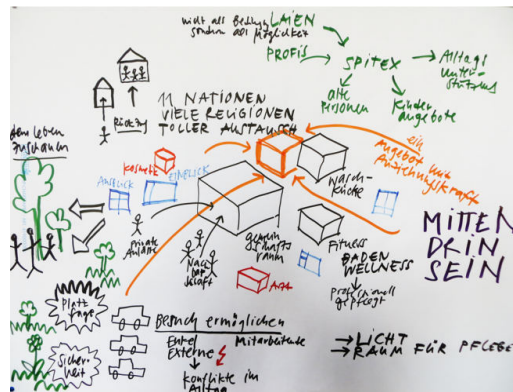 nicht als Bedingung
sondern als Möglichkeit
LAIEN
PROFIS
SPITEX
Alltags
unter-
stützung
alte
Personen
Kinder
angebote
Rückzug
11 NATIONEN
VIELE RELIGIONEN
TOLLER AUSTAUSCH
dem Leben
zuschauen
Kosmetik
AUSBLICK
EINBLICK
ein
Angebot mit
Anziehungskraft
wasch-
küche
private
Anlässe
Nach
bar
schaft
gemein
schafts
raum
Fitness
BADEN
WELLNESS
professionell
gepflegt
MITTEN
DRIN
SEIN
Arzt
Platz
frage
Sicher-
heit
Besuch ermöglichen
Enkel
Externe
Mitarbeitende
Konflikte im
Alltag
→ LICHT
→ RAUM FÜR PFLEGE